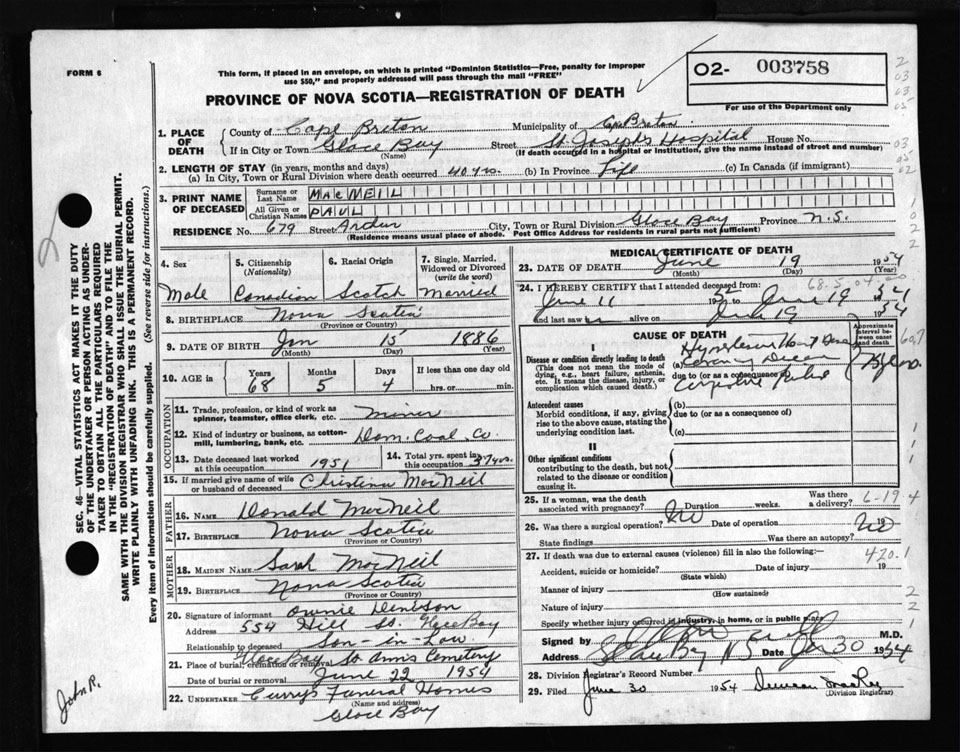 FORM 6
This form, if placed in an envelope, on which is printed "Dominion Statistics—Free, penalty for improper
use $50," and properly addressed will pass through the mail "FREE"
PROVINCE OF NOVA SCOTIA—REGISTRATION OF DEATH
02- 003758
For use of the Department only
1. PLACE OF DEATH
County of Cape Breton Municipality of Cape Breton
If in City or Town Glace Bay Street St. Joseph's Hospital House No.
(Name) (If death occurred in a hospital or institution, give the name instead of street and number)
2. LENGTH OF STAY (in years, months and days)
(a) In City, Town or Rural Division where death occurred 40 yrs. (b) In Province Life (c) In Canada (if immigrant)
3. PRINT NAME OF DECEASED
Surname or Last Name MACNEIL
All Given or Christian Names PAUL
RESIDENCE No. 679 Street City, Town or Rural Division Glace Bay Province N.S.
(Residence means usual place of abode. Post Office Address for residents in rural parts not sufficient)
4. Sex Male
5. Citizenship (Nationality) Canadian
6. Racial Origin Scotch
7. Single, Married, Widowed or Divorced (write the word) Married
8. BIRTHPLACE Nova Scotia
(Province or Country)
9. DATE OF BIRTH Jan 15 1886
(Month) (Day) (Year)
10. AGE in Years 68 Months 5 Days 4 If less than one day
hrs. or min.
OCCUPATION
11. Trade, profession, or kind of work as spinner, teamster, office clerk, etc. Miner
12. Kind of industry or business, as cotton-mill, lumbering, bank, etc. Dom. Coal Co.
13. Date deceased last worked at this occupation 1951
14. Total yrs. spent in this occupation 37 yrs.
15. If married give name of wife or husband of deceased Christina MacNeil
FATHER
16. NAME Donald MacNeil
17. BIRTHPLACE Nova Scotia
(Province or Country)
MOTHER
18. MAIDEN NAME Sarah MacNeil
19. BIRTHPLACE Nova Scotia
(Province or Country)
20. Signature of informant
Address 554 Hill St. Glace Bay
Relationship to deceased Son-in-Law
21. Place of burial, cremation or removal Glace Bay St Anns Cemetery
Date of burial or removal June 22 1954
22. UNDERTAKER Curry's Funeral Homes
(Name and address)
Glace Bay
MEDICAL CERTIFICATE OF DEATH
23. DATE OF DEATH June 19 1954
(Month) (Day) (Year)
24. I HEREBY CERTIFY that I attended deceased from:
June 11 19 to June 19 1954
and last saw h alive on June 19 1954
CAUSE OF DEATH
Approximate interval between onset and death
I
Disease or condition directly leading to death
(This does not mean the mode of dying, e.g., heart failure, asthenia, etc. It means the disease, injury, or complication which caused death.)
(a)
due to (or as a consequence of)
Antecedent causes
Morbid conditions, if any, giving rise to the above cause, stating the underlying condition last.
(b)
due to (or as a consequence of)
(c)
II
Other significant conditions
contributing to the death, but not related to the disease or condition causing it.
25. If a woman, was the death associated with pregnancy? Duration weeks. Was there a delivery?
26. Was there a surgical operation? No Date of operation 19
State findings Was there an autopsy? No
27. If death was due to external causes (violence) fill in also the following:—
Accident, suicide or homicide? Date of injury 19
(State which)
Manner of injury
(How sustained)
Nature of injury
Specify whether injury occurred in industry, in home, or in public place
Signed by M.D.
Address Glace Bay N.S. Date 30 1954
28. Division Registrar's Record Number
29. Filed June 30 1954
(Division Registrar)
SEC. 46—VITAL STATISTICS ACT MAKES IT THE DUTY
OF THE UNDERTAKER OR PERSON ACTING AS UNDER-
TAKER TO OBTAIN ALL THE PARTICULARS REQUIRED
IN THE "REGISTRATION OF DEATH" AND TO FILE THE
SAME WITH THE DIVISION REGISTRAR WHO SHALL ISSUE THE BURIAL PERMIT.
WRITE PLAINLY WITH UNFADING INK. THIS IS A PERMANENT RECORD.
Every item of information should be carefully supplied. (See reverse side for instructions.)
John R.
6-19-4
420.1